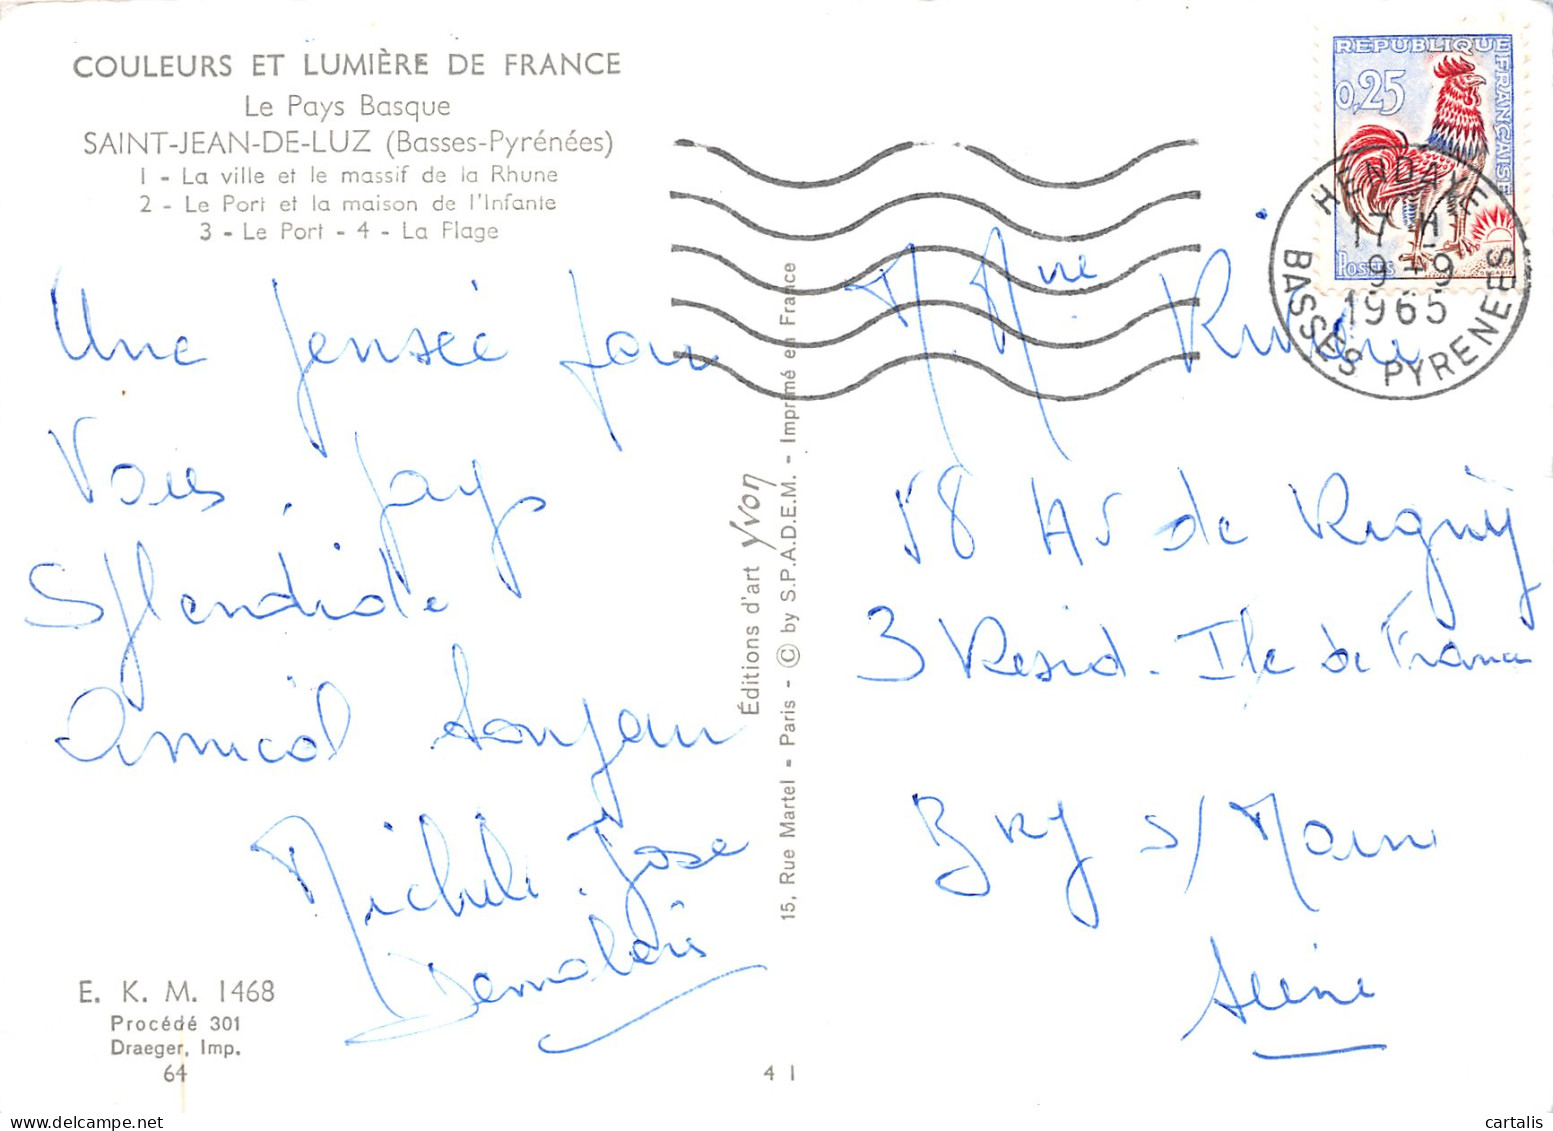 COULEURS ET LUMIÈRE DE FRANCE
Le Pays Basque
SAINT-JEAN-DE-LUZ (Basses-Pyrénées)
1 - La ville et le massif de la Rhune
2 - Le Port et la maison de l'Infante
3 - Le Port - 4 - La Plage
Une pensée pour
Vous. pays
Splendide
Amical bonjour
Michele. Jose
E. K. M. 1468
Procédé 301
Draeger, Imp.
64
4 1
Éditions d'art Yvon
15, Rue Martel - Paris - © by S.P.A.D.E.M. - Imprimé en France
REPUBLIQUE FRANÇAISE
0,25
Postes
HENDAYE
17 H
9 - 9
1965
BASSES PYRENEES
M. Mme Rivière
58 Av de Rigny
3 Resid. Ile de France
Bry s/ Marne
Seine
cartalis